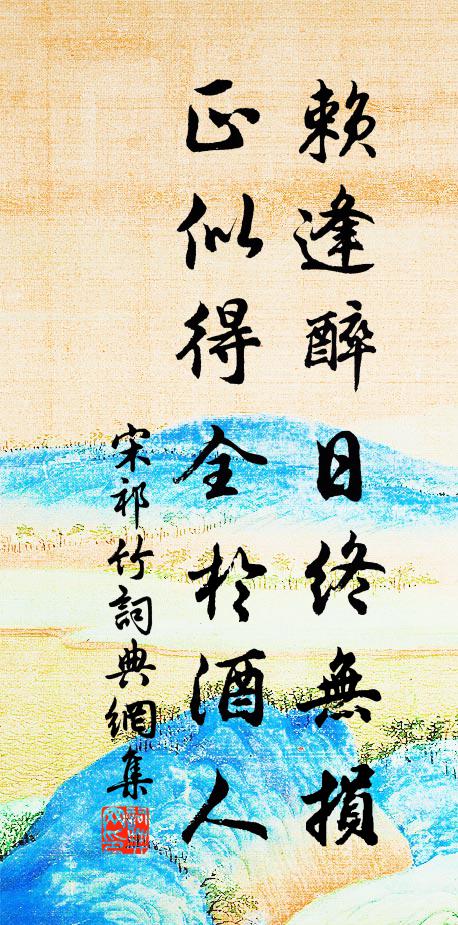 賴逢醉日終無損
正似得全於酒人
宋祁竹詞典網集